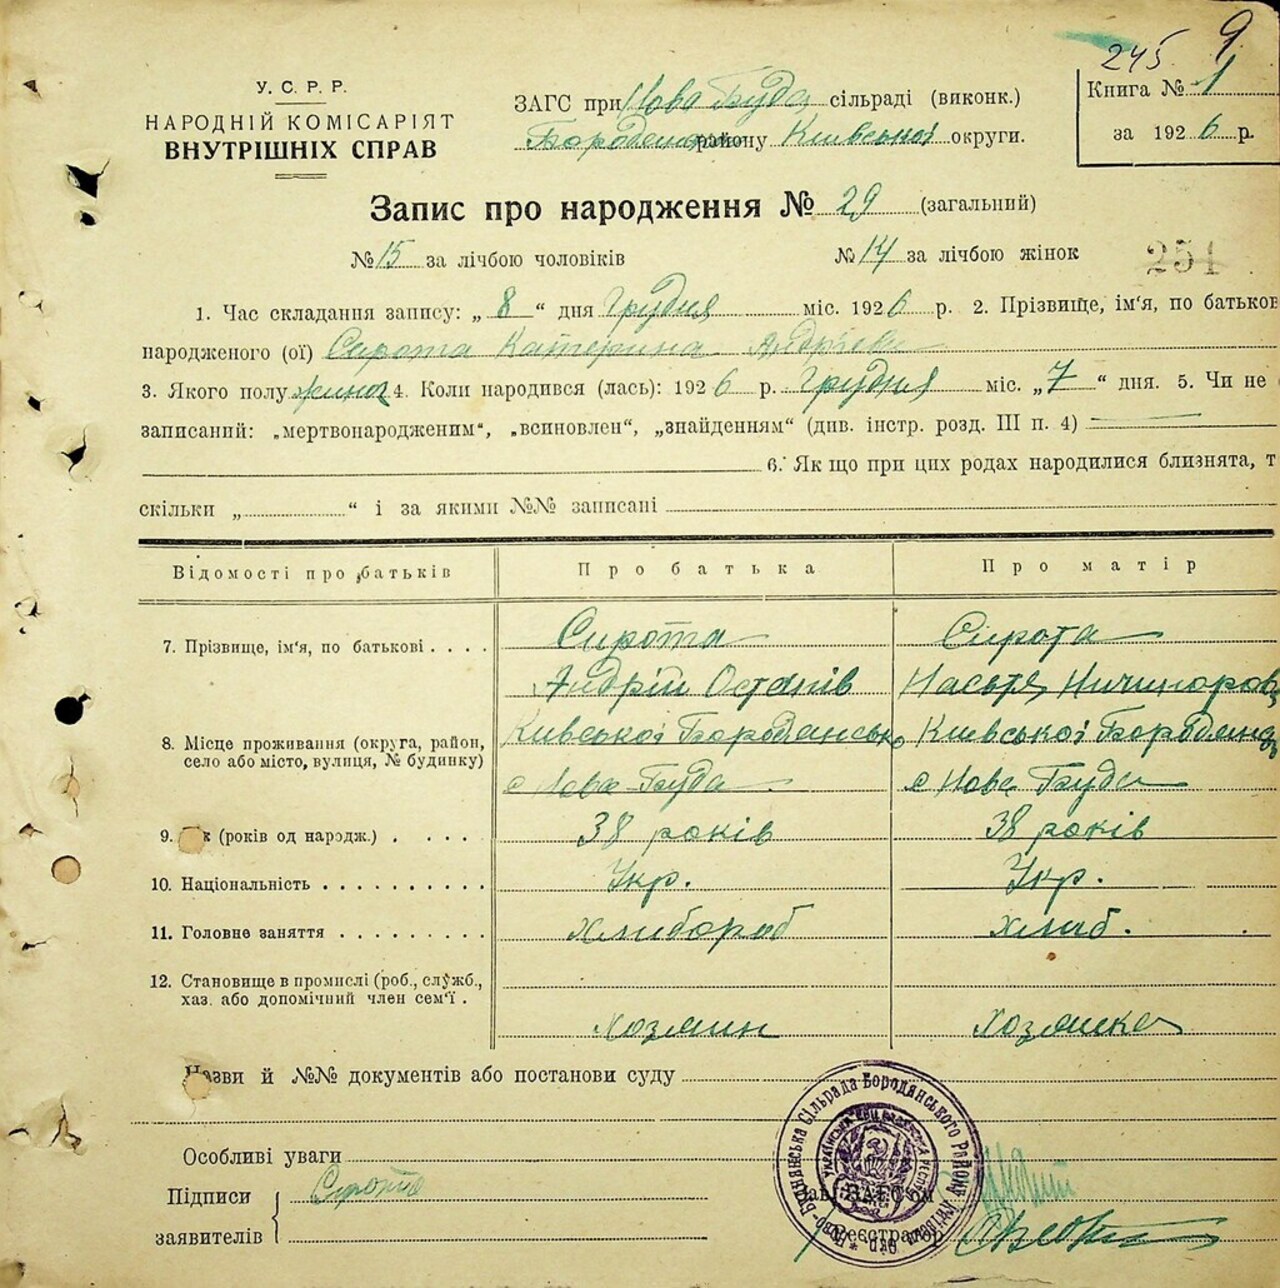 245 9
У. С. Р. Р.
НАРОДНІЙ КОМІСАРІЯТ
ВНУТРІШНІХ СПРАВ
ЗАГС при Нова Буда сільраді (виконк.)
району Київської округи.
Книга № 1
за 1926 р.
Запис про народження № 29 (загальний)
№ 15 за лічбою чоловіків № 14 за лічбою жінок
251
1. Час складання запису: „ 8 “ дня Грудня міс. 1926 р. 2. Прізвище, ім‘я, по батькові
народженого (ої) Сирота Катерина Андріева
3. Якого полу жиноч 4. Коли народився (лась): 1926 р. Грудня міс. „7“ дня. 5. Чи не
записаний: „мертвонародженим“, „всиновлен“, „знайденням“ (див. інстр. розд. III п. 4)
6. Як що при цих родах народилися близнята, т
скільки „ “ і за якими №№ записані
Відомості про батьків Про батька Про матір
7. Прізвище, ім‘я, по батькові . . . . Сирота Сирота
Андрій Остапів Настя Ничипоров
8. Місце проживання (округа, район, село або місто, вулиця, № будинку) Київської Бородянсько Київської Бородянсь
с Нова Буда с Нова Буда
9. к (років од народж.) . . . . 38 років 38 років
10. Національність . . . . . . . . . . Укр. Укр.
11. Головне заняття . . . . . . . . . Хлибороб хліб.
12. Становище в промислі (роб., служб., хаз. або допомічний член сем‘ї . Хозяин Хозяика
Назви й №№ документів або постанови суду
Особливі уваги
Підписи заявителів Сирота
Зав. ЗАГС‘ом
Реєстратор
Ново-Будянська Сільрада Бородянського Району Київської Окр.